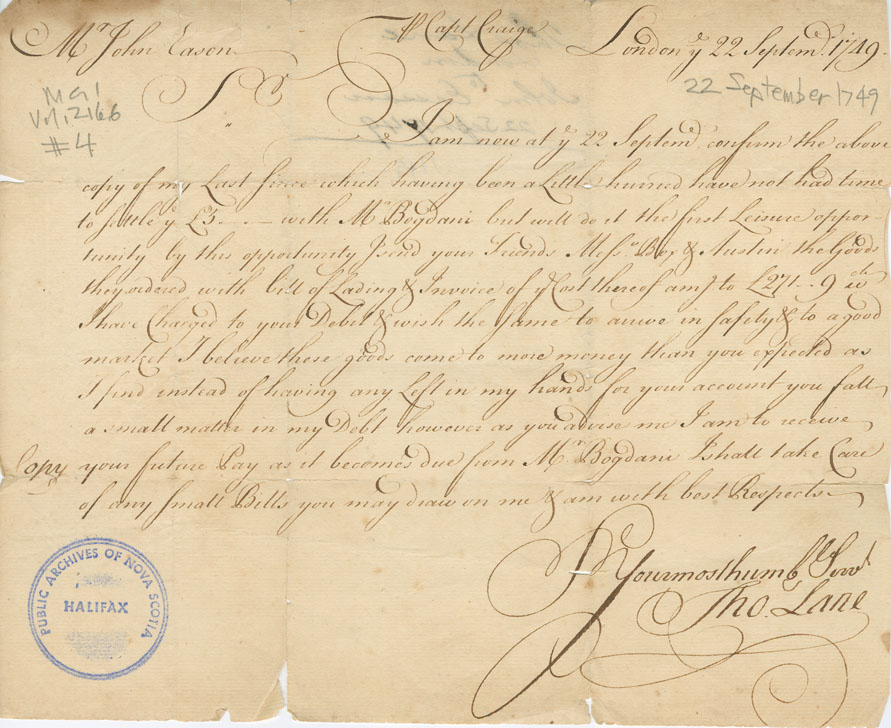 Mr John Eason
℔ Capt Craige
London ye 22 Septemr 1749.
Sr
22 September 1749
MG1
Vol. 2166
#4
I am now at ye 22 Septemr confirm the above
copy of my Last since which having been a Little hurried have not had time
to settle ye £5 with Mr Bogdani but will do it the first Leisure oppor-
tunity by this opportunity I send your Friends Messrs & Austin the Goods
they ordered with bill of Lading & Invoice of ye Cost thereof amt to £271..9 wch
I have Charged to your Debit & wish the same to arrive in safety & to a good
market I believe these goods come to more money than you expected as
I find instead of having any Left in my hands for your account you fall
a small matter in my Debt however as you advise me I am to receive
Copy your future Pay as it becomes due from Mr Bogdani I shall take Care
of any small Bills you may draw on me & am with best Respects
Sr Your most humbl Servt
Tho. Lane
PUBLIC ARCHIVES OF NOVA SCOTIA
HALIFAX